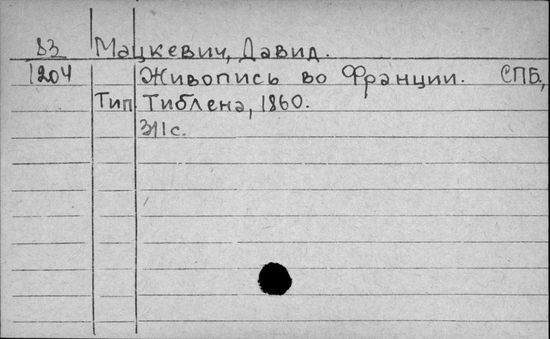 83 Мацкевич, Давид.
1204 Живопись во Франции. СПБ,
Тип. Тиблена, 1860.
311с.